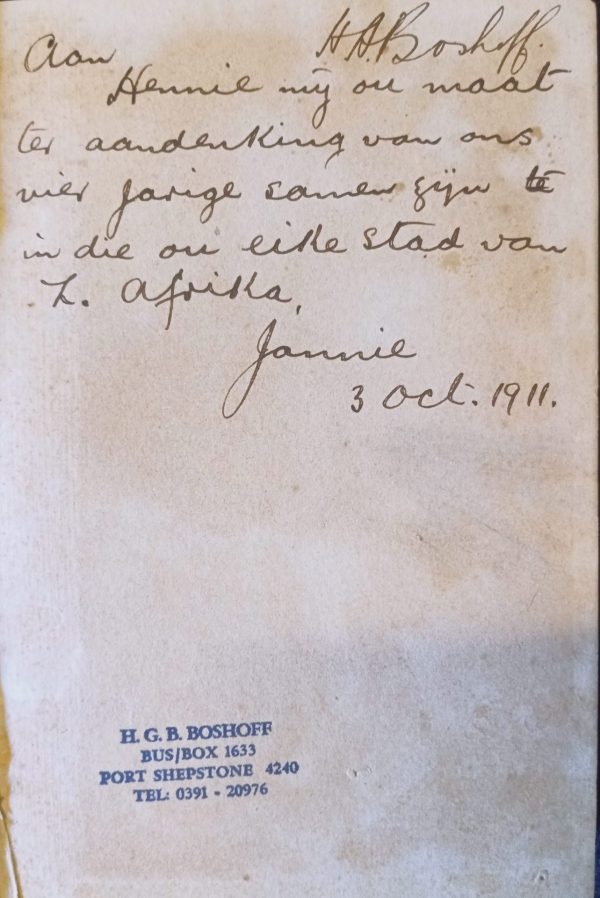 H.A. Boshoff.
Aan
Hennie mij ou maat
ter aandenking van ons
vier jarige samen zijn te
in die ou eike stad van
Z. Afrika,
Jannie
3 Oct. 1911.
H. G. B. BOSHOFF
BUS/BOX 1633
PORT SHEPSTONE 4240
TEL: 0391 - 20976